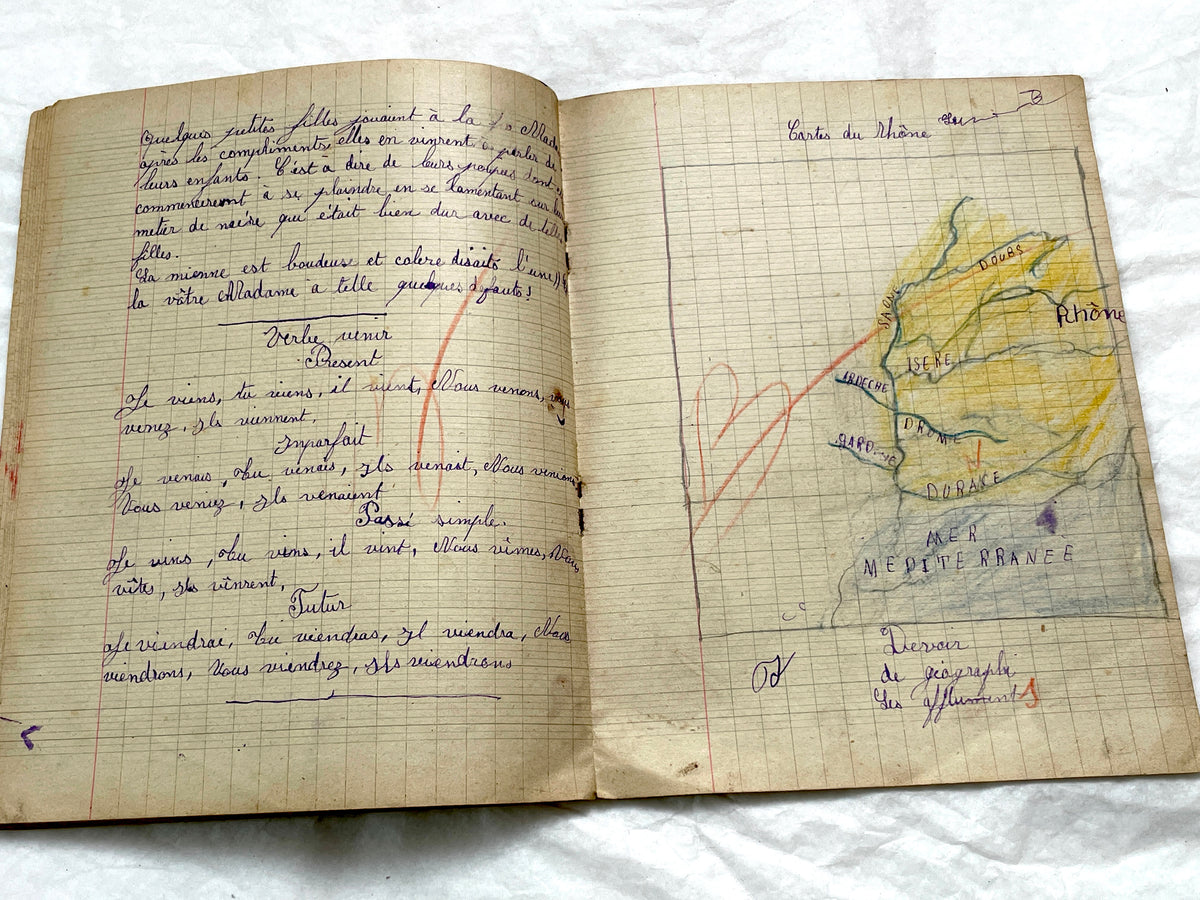 Quelques petites filles jouaient à la
après les compliments elles en vinrent à parler de
leurs enfants. C'est à dire de leurs poupées dont
commencèrent à se plaindre en se lamentant sur
metier de mère qui était bien dur avec de telles
filles.
La mienne est boudeuse et colere disait l'une
la vôtre Madame a telle quelques defauts!
Verbe venir
Présent
Je viens, tu viens, il vient, Nous venons, vous
venez, ils viennent.
Imparfait
Je venais, tu venais, Ils venait, Nous venions
Vous veniez, Ils venaient
Passé simple.
Je vins, tu vins, il vint, Nous vîmes, Vous
vîtes, ils vînrent.
Futur
Je viendrai, tu viendras, Il viendra, Nous
viendrons, Vous viendrez, Ils viendrons
Cartes du Rhône
B
DOUBS
SAONE
Rhône
ISERE
ARDECHE
DROME
GARD
DURANCE
MER
MEDITERRANEÈ
Devoir
de géographi
Les affluents